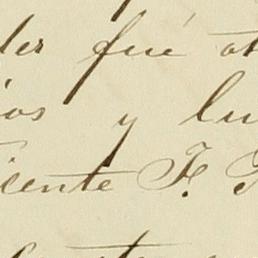 der fué
ios y lu
icente F.